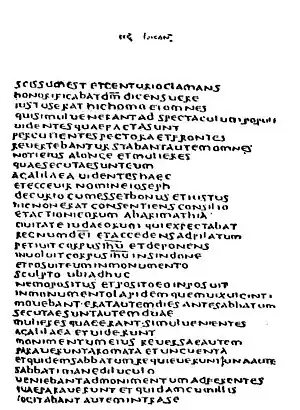 SCISSUM EST ET CENTURIO CLAMANS
HONORIFICABAT DM DICENS VERE
IUSTUS ERAT HIC HOMO ET OMNES
QUI SIMUL VENERANT AD SPECTACULUM
UIDENTES QUAE FACTA SUNT
PERCUTIENTES PECTORA ET FRONTES
REVERTEBANTUR STABANT AUTEM OMNES
NOTI EIUS A LONGE ET MULIERES
QUAE SECUTAE SUNT EUM
A GALILAEA UIDENTES HAEC
ET ECCE UIR NOMINE IOSEPH
DECURIO CUM ESSET BONUS ET IUSTUS
HIC NON ERAT CONSENTIENS CONSILIO
ET ACTIONI EORUM AB ARIMATHIA
CIVITATE IUDAEORUM QUI EXPECTABAT
REGNUM DEI ET ACCEDENS AD PILATUM
PETIUIT CORPUS IHU ET DEPONENS
INUOLUIT CORPUS IHU IN SINDONE
ET POSUIT EUM IN MONUMENTO
SCULPTO UBI ADHUC
NEMO POSITUS ET POSITO EO INPOSUIT
IN MONUMENTO LAPIDEM QUEM UIX UIGINTI
MOUEBANT ERAT AUTEM DIES ANTE SABBATUM
SECUTAE SUNT AUTEM DUAE
MULIERES QUAE ERANT SIMUL UENIENTES
A GALILAEA ET UIDERUNT
MONIMENTUM EIUS REUERSAE AUTEM
PARAUERUNT AROMATA ET UNCUENTA
ET QUIDEM SABBATUM REQUIEUERUNT
SABBATI MANE DILUCULO
UENIEBANT AD MONIMENTUM ADFERENTES
QUAE PARAUERUNT ET QUIDAM CUM ILLIS
COGITABANT AUTEM INTRA SE